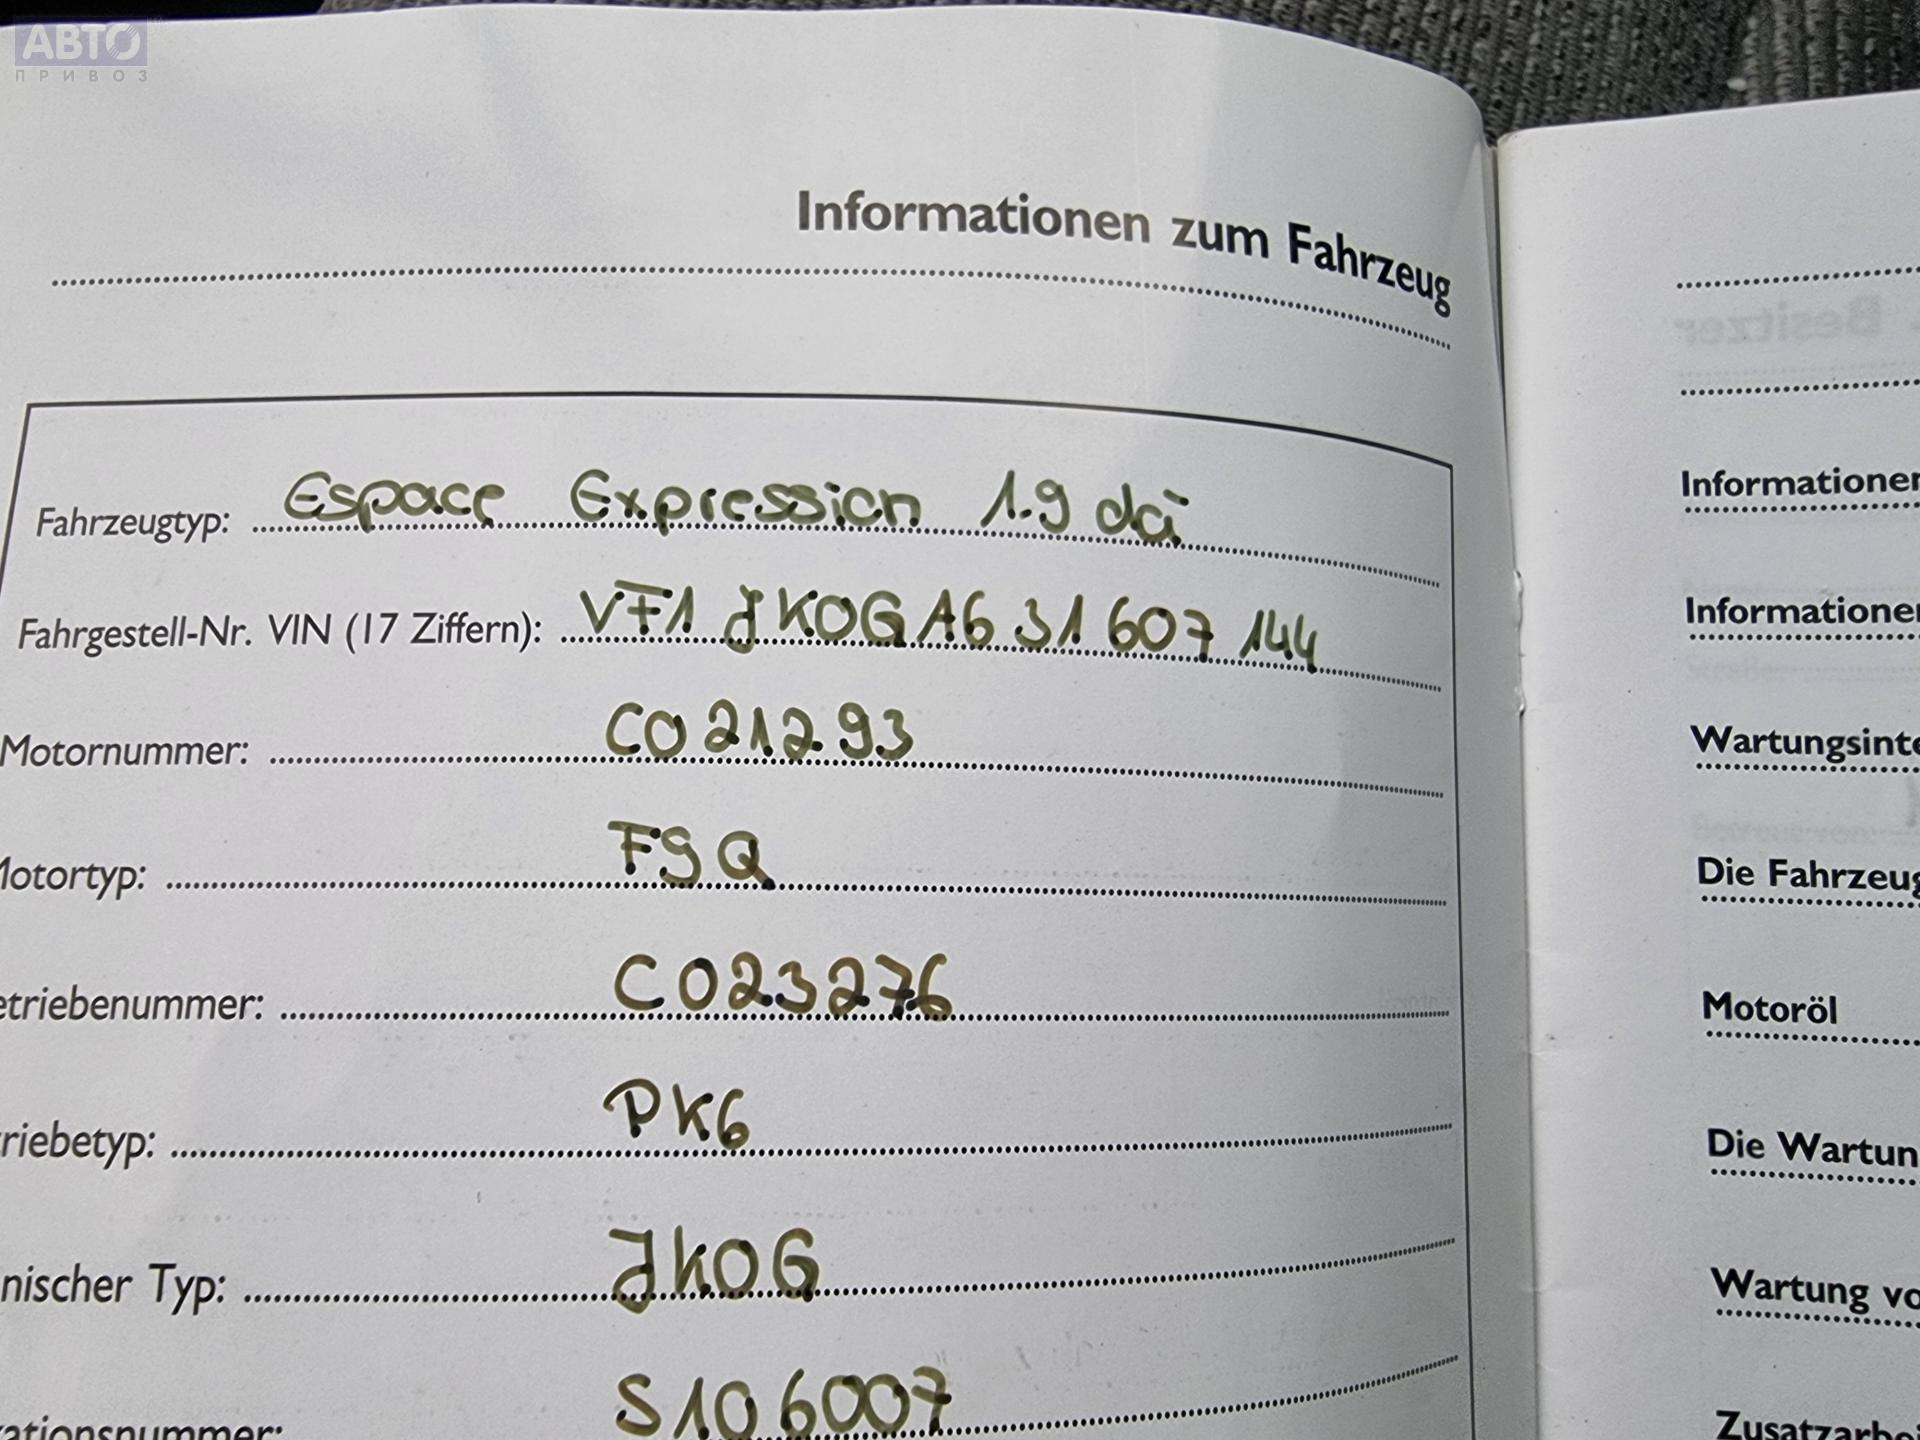 АВТО
ПРИВОЗ
Informationen zum Fahrzeug
Fahrzeugtyp: Espace Expression 1.9 dci
Fahrgestell-Nr. VIN (17 Ziffern): VF1 JK0GA6 31 607 144
Motornummer: C021293
Motortyp: F9Q
etriebenummer: C023276
riebetyp: PK6
nischer Typ: JK0G
kationsnummer: S106007
. Besitzer
Informationen
Informationen
Wartungsinte
Die Fahrzeug
Motoröl
Die Wartun
Wartung vo
Zusatzarbei